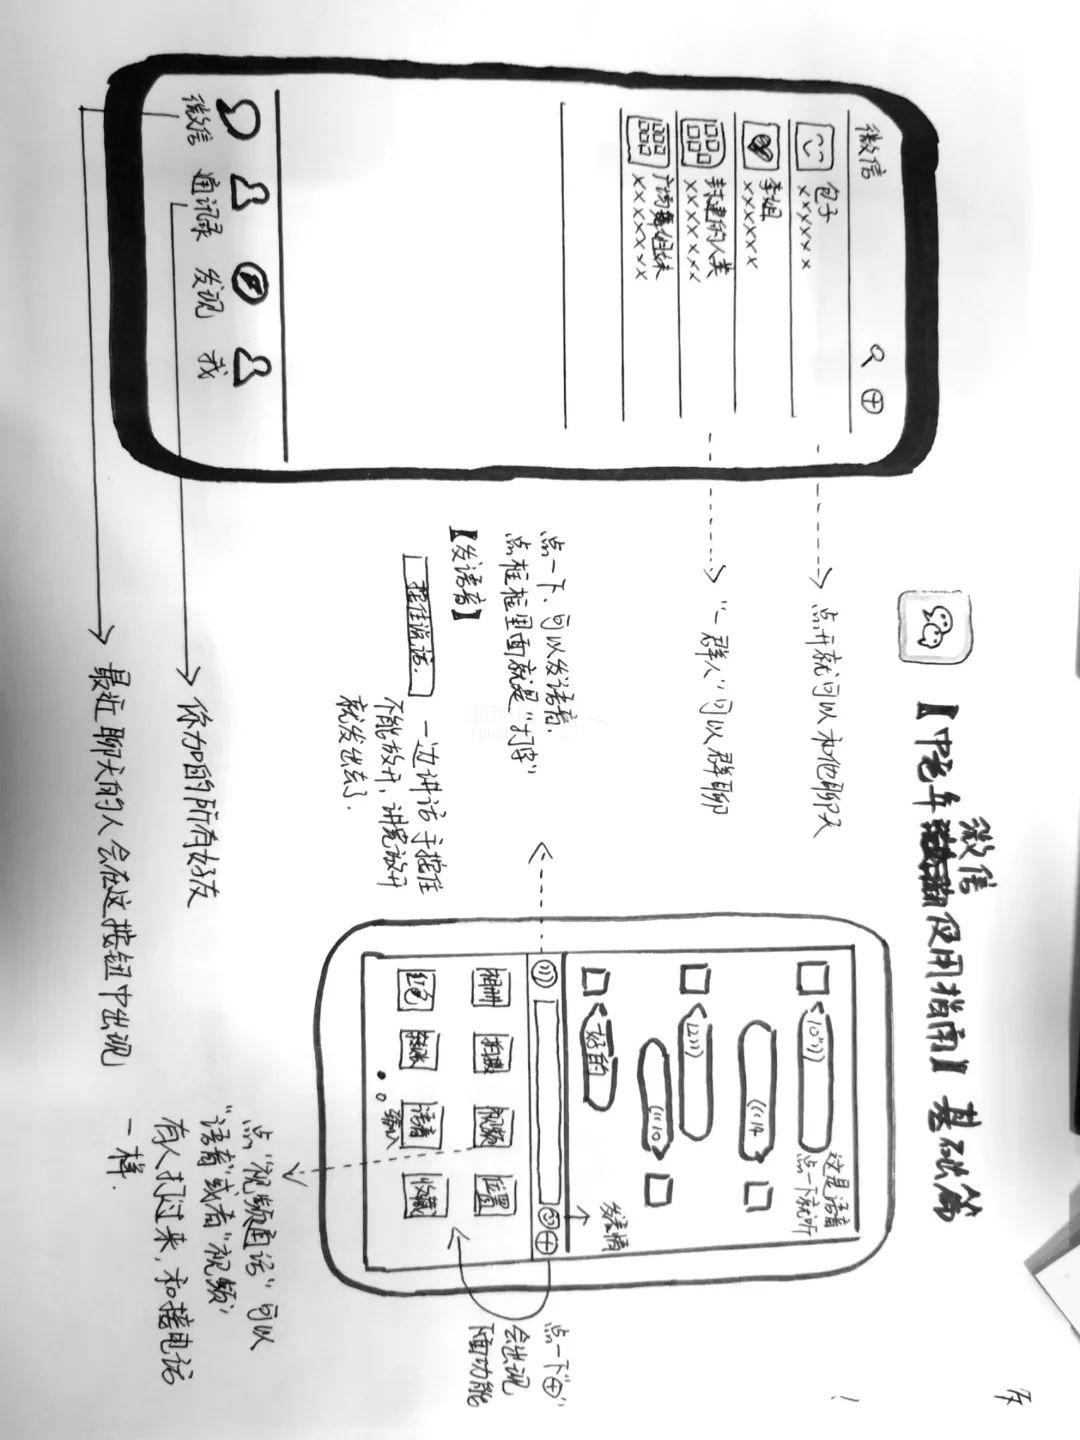 【中老年微信使用指南】基础篇
微信
包子
xxyxxx
李姐
xyxxxx
封建的人类
xxxxxxx
广场舞姐妹
xxxxxxx
微信 通讯录 发现 我
点开就可以和他聊天
“一群人”可以群聊
你加的所有好友
最近聊天的人会在这按钮中出现
点一下,可以发语音.
点框框里面就是“打字”
【发语音】
按住说话.
一边讲话 手按住
不能放开,讲完放开
就发出去了.
这是语音
点一下就听
10"
14
12
10
好的
发表情
相册 拍摄 视频 位置
红包 转账 语音输入 收藏
点一下“⊕”
会出现
下面功能
点“视频通话”可以
“语音”或者“视频”
有人打过来,和接电话
一样.